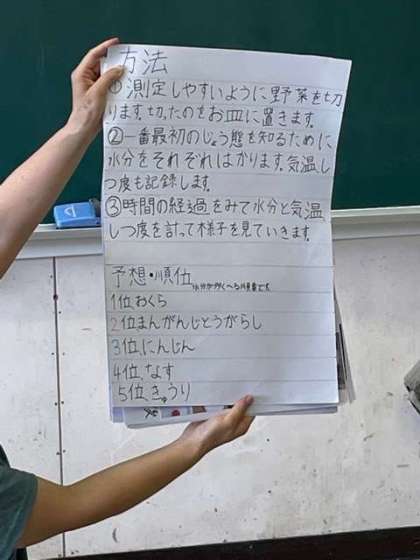 方法
①測定しやすいように野菜を切
ります。切ったのをお皿に置きます。
②一番最初のじょう態を知るために
水分をそれぞれはかります。気温、し
つ度も記録します。
③時間の経過をみて水分と気温
しつ度を計って様子を見ていきます。
予想・順位 水分が多くへる順番です
1位、おくら
2位まんがんじとうがらし
3位、にんじん
4位、なす
5位、きゅうり